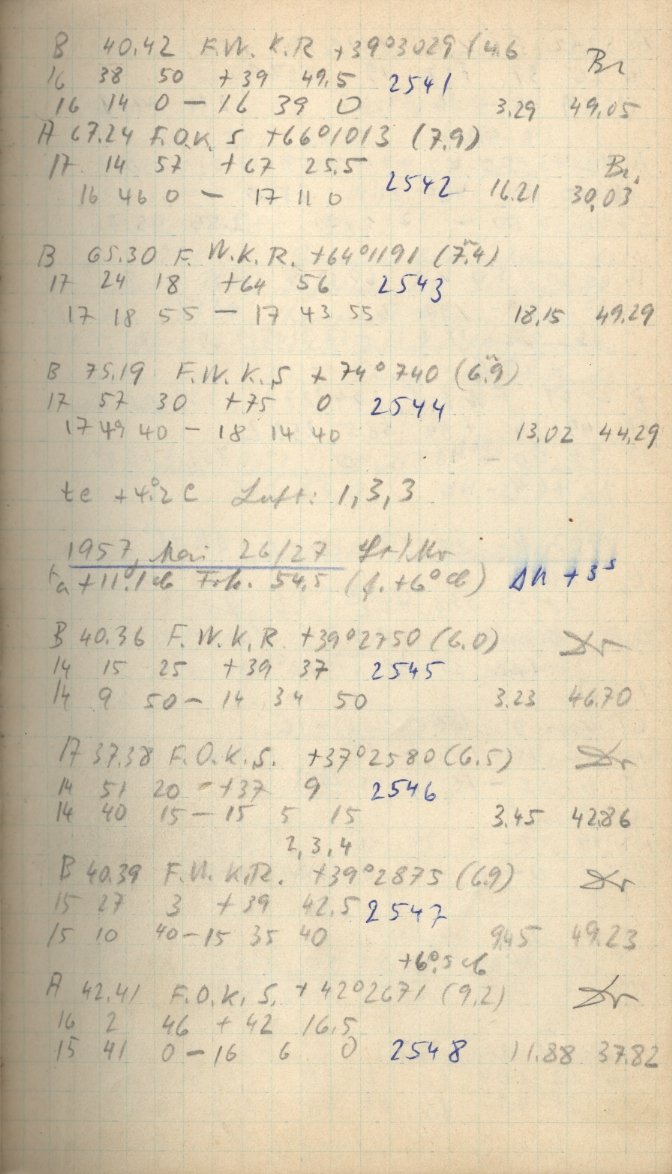 B 40.42 F.W.K.R +39°3029 (4.6 Br
16 38 50 +39 49.5 2541
16 14 0 – 16 39 0 3.29 49.05
A 67.24 F.O.K.S +66°1013 (7.9)
17 14 57 +67 25.5 Br.
16 46 0 – 17 11 0 2542 16.21 30.03
B 65.30 F.W.K.R. +64°1191 (7.4)
17 24 18 +64 56 2543
17 18 55 – 17 43 55 18.15 49.29
B 75.19 F.W.K.S +74°740 (6.9)
17 57 30 +75 0 2544
17 49 40 – 18 14 40 13.02 44.29
te +4.°2 C Luft: 1,3,3
1957, Mai 26/27
+11.1 54.5 (f. +6° ΔU +3s
B 40.36 F.W.K.R +39°2750 (6.0)
14 15 25 +39 37 2545
14 9 50 – 14 34 50 3.23 46.70
A 37.38 F.O.K.S. +37°2580 (6.5)
14 51 20 +37 9 2546
14 40 15 – 15 5 15 3.45 42.86
2,3,4
B 40.39 F.W.K.R. +39°2875 (6.9)
15 27 3 +39 42.5 2547
15 10 40 – 15 35 40 9.45 49.23
+6°.5
A 42.41 F.O.K.S. +42°2671 (9.2)
16 2 46 +42 16.5
15 41 0 – 16 6 0 2548 11.88 37.82